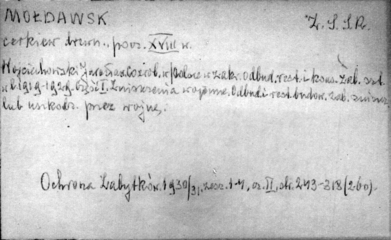 MOŁDAWSK. Z.S.S.R.
cerkiew drewn., pow. XVIII w.
Wojciechowski Jarosław. Co zrob. w Polsce w zakr. odbud., rest. i kons. zab. szt.
w l. 1919-1929. Część I. Zniszczenia wojenne. Odbud. i rest. budow. zab. zniszcz.
lub uszkodz. przez wojnę.
Ochrona Zabytków. 1930/31, zesz. 1-4, cz. II, str. 243-318 (260).